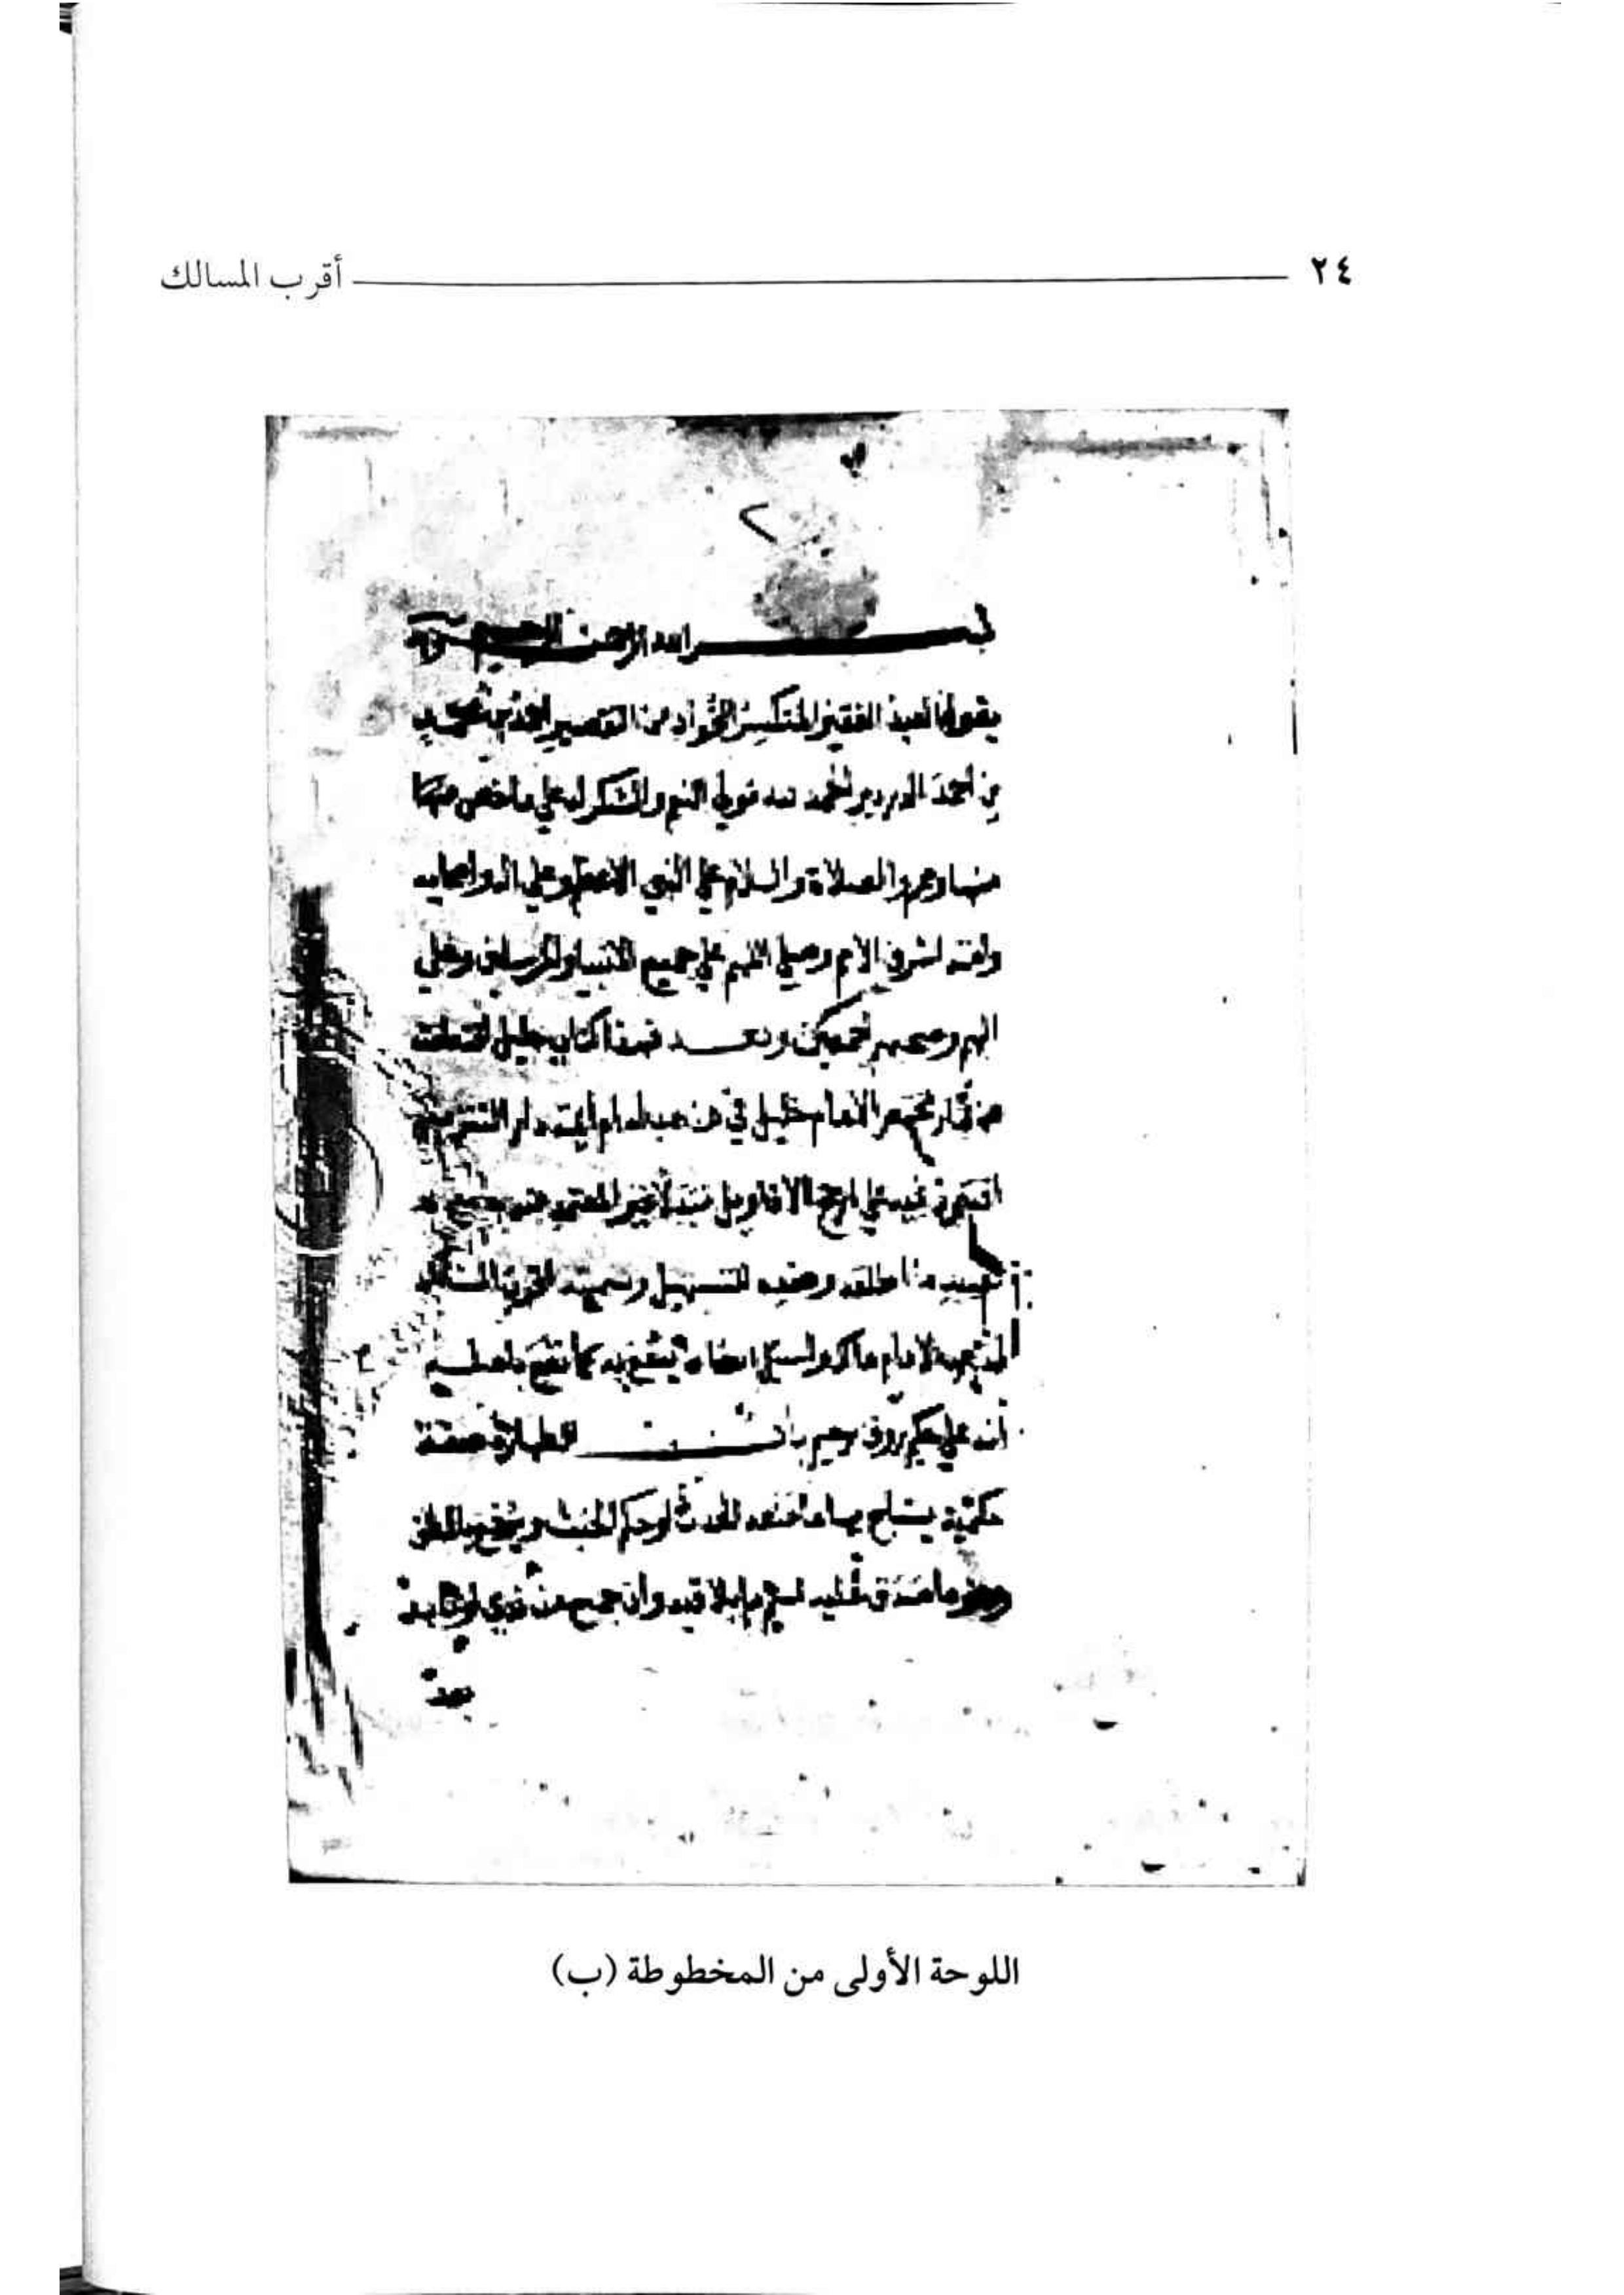 ٢٤ أقرب المسالك
٢
بسم الله الرحمن الرحيم
يقول العبد الفقير المنكسر الفؤاد من التقصير احمد بن محمد
بن احمد الدردير الحمد لله مولي النعم والشكر له علي ما خص منها
منها وعم والصلاة والسلام علي النبي الاعظم وعلي اله واصحابه
وامته اشرف الامم وصلي اللهم علي جميع الانبيا والمرسلين وعلي
الهم وصحبهم اجمعين وبعد فهذا كتاب جليل اقتطفته
من ثمار مختصر الامام خليل في مذهب امام ايمة دار التنزيل
اقتصرت فيه علي ارجح الاقاويل مبدلا غير المعتمد منه به مع
تقييد ما اطلقه وضده للتسهيل وسميته اقرب المسالك
لمذهب الامام مالك واسئل الله ان ينفع به كما نفع باصله
انه علي حكيم رؤف رحيم باب الطهارة صفة
حكمية يستباح بها ما منعه الحدث او حكم الخبث ويرفع بالمطلق
وهو ما صدق عليه اسم ما بلا قيد وان جمع من ندي او ذاب
بعد
اللوحة الأولى من المخطوطة (ب)